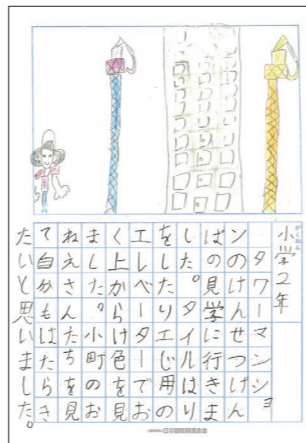 小学2年
タワーマンショ
ンのけんせつげん
ばの見学に行きま
した。タイルはり
をしたり工じ用の
エレベーターでお
く上からけ色を見
ました。小町のお
ねえさんたちを見
て自分もはたらき
たいと思いました。